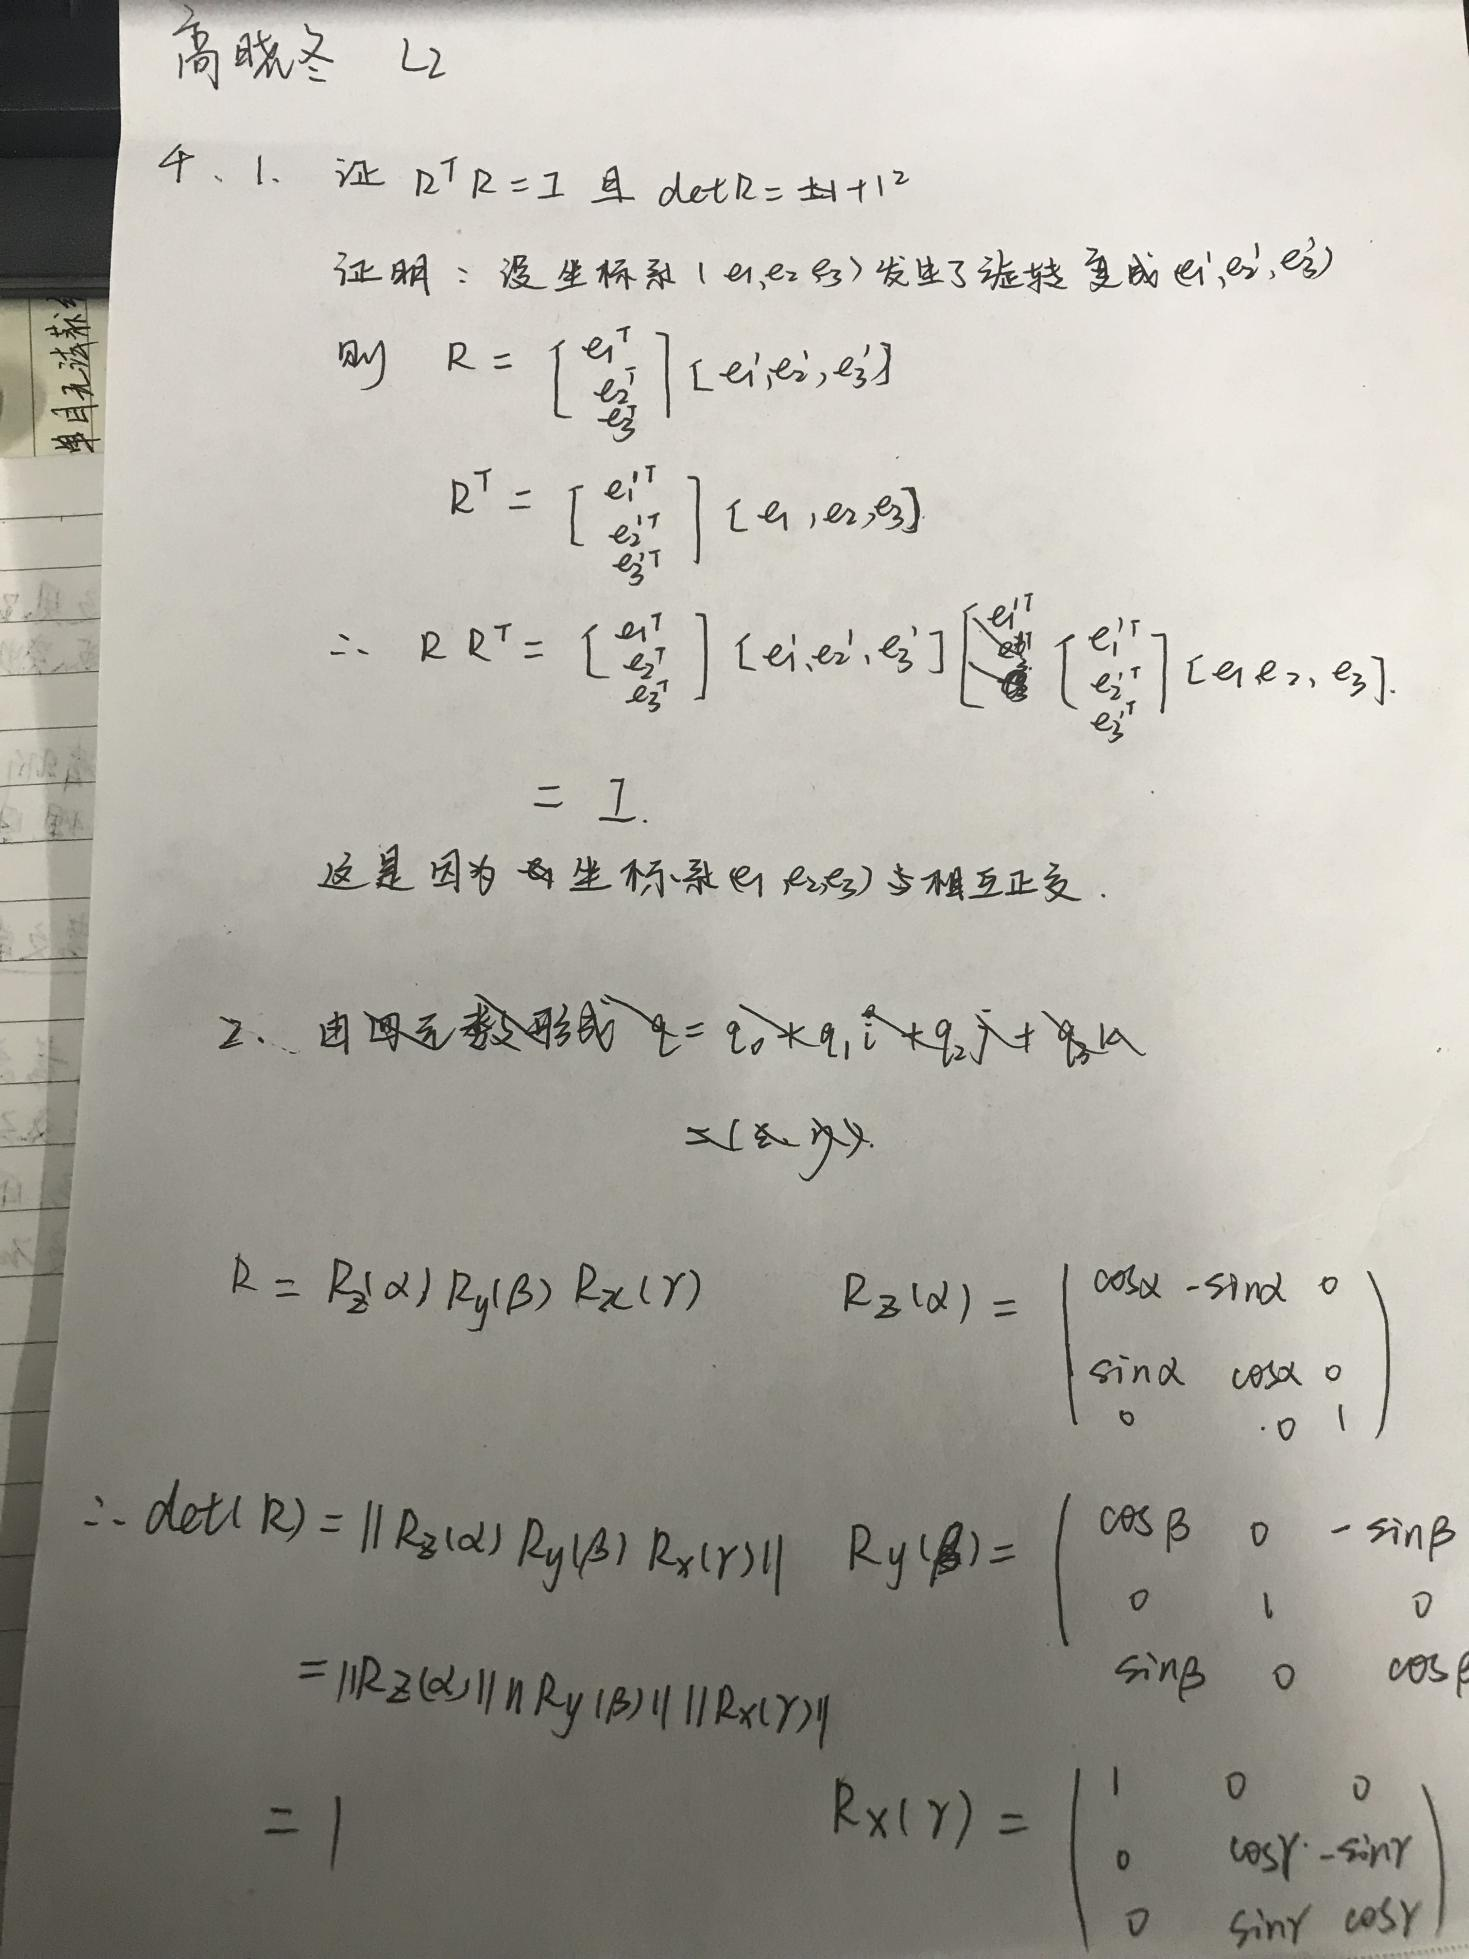 高晓冬 L2
4、1. 证 RᵀR = I 且 detR = ±1+1²
证明：设坐标系(e₁,e₂ e₃)发生了旋转变成(e₁',e₂',e₃')
则 R = [e₁ᵀ e₂ᵀ e₃ᵀ] [e₁',e₂',e₃']
Rᵀ = [e₁'ᵀ e₂'ᵀ e₃'ᵀ] [e₁,e₂,e₃].
∴ R Rᵀ = [e₁ᵀ e₂ᵀ e₃ᵀ] [e₁',e₂',e₃'] [e₁'ᵀ e₂'ᵀ e₃'ᵀ] [e₁ e₂, e₃].
= I.
这是因为 坐标系(e₁,e₂,e₃) 相互正交.
2. 由四元数形式 q = q₀+q₁i+q₂j+q₃k
R = Rz(α) Ry(β) Rx(γ) Rz(α) =
cosα -sinα 0
sinα cosα 0
0 0 1
∴ det(R) = ||Rz(α) Ry(β) Rx(γ)|| Ry(β) =
cosβ 0 -sinβ
0 1 0
sinβ 0 cosβ
= ||Rz(α)|| ||Ry(β)|| ||Rx(γ)||
= 1 Rx(γ) =
1 0 0
0 cosγ -sinγ
0 sinγ cosγ
单目无法